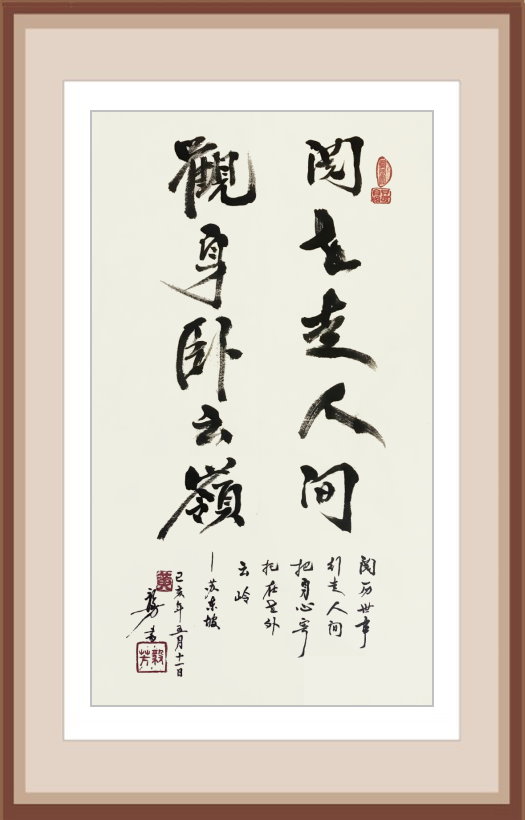 阅世走人间
觀身卧云嶺
阅历世事
行走人间
把身心寄
托在世外
云岭
—苏东坡
己亥年五月十一日
书
黄
毅芳